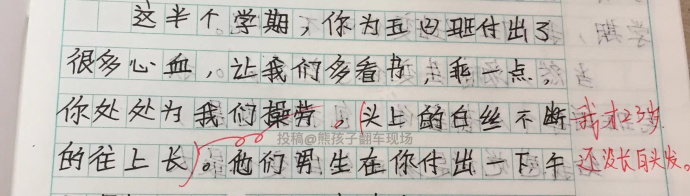 这半个学期，你为五四班付出了
很多心血，让我们多看书，乖一点，
你处处为我们操劳，（头上的白丝不断
的往上长）。他们男生在你付出一下午
我才23岁
还没长白头发。
投稿@熊孩子翻车现场